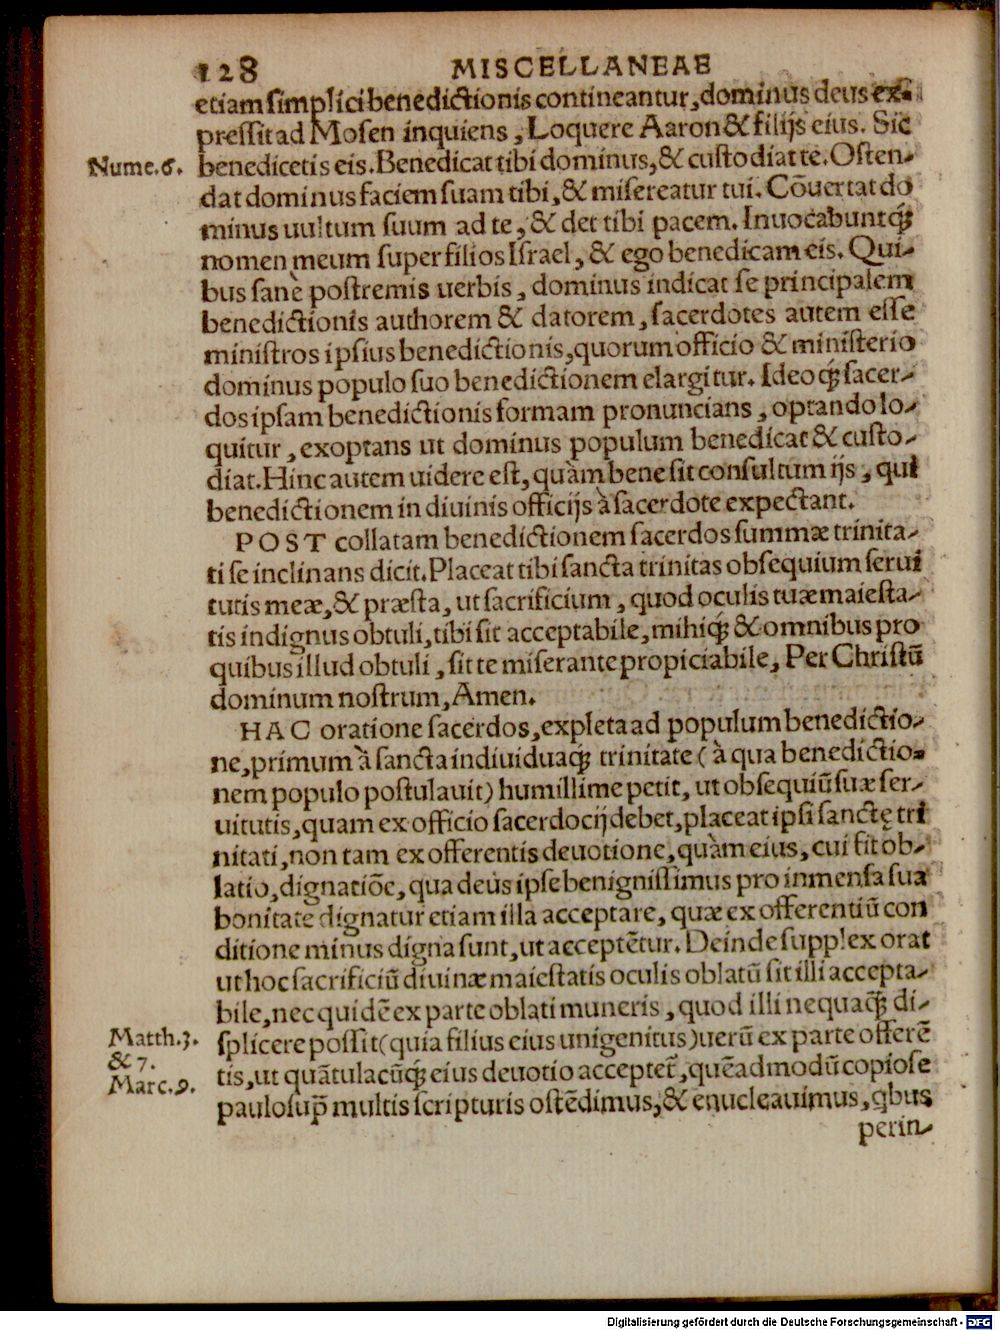 128 MISCELLANEAE
etiam simplici benedictionis contineantur, dominus deus ex-
pressit ad Mosen inquiens, Loquere Aaron & filijs eius. Sic
Nume.6. benedicetis eis. Benedicat tibi dominus, & custodiat te. Osten-
dat dominus faciem suam tibi, & misereatur tui. Cōuertat do
minus uultum suum ad te, & det tibi pacem. Inuocabuntq́;
nomen meum super filios Israel, & ego benedicam eis. Qui-
bus sanè postremis uerbis, dominus indicat se principalem
benedictionis authorem & datorem, sacerdotes autem esse
ministros ipsius benedictionis, quorum officio & ministerio
dominus populo suo benedictionem elargitur. Ideoq́; sacer-
dos ipsam benedictionis formam pronuncians, optando lo-
quitur, exoptans ut dominus populum benedicat & custo-
diat. Hinc autem uidere est, quàm bene sit consultum ijs, qui
benedictionem in diuinis officijs à sacerdote expectant.
POST collatam benedictionem sacerdos summæ trinita-
ti se inclinans dicit. Placeat tibi sancta trinitas obsequium serui
tutis meæ, & præsta, ut sacrificium, quod oculis tuæ maiesta-
tis indignus obtuli, tibi sit acceptabile, mihiq́; & omnibus pro
quibus illud obtuli, sit te miserante propiciabile, Per Christū
dominum nostrum, Amen.
HAC oratione sacerdos, expleta ad populum benedictio-
ne, primum à sancta indiuiduaq́; trinitate (à qua benedictio-
nem populo postulauit) humillime petit, ut obsequiū suæ ser-
uitutis, quam ex officio sacerdocij debet, placeat ipsi sanctę tri
nitati, non tam ex offerentis deuotione, quàm eius, cui fit ob-
latio, dignatiōe, qua deus ipse benignissimus pro inmensa sua
bonitate dignatur etiam illa acceptare, quæ ex offerentiū con
ditione minus digna sunt, ut acceptētur. Deinde supplex orat
ut hoc sacrificiū diuinæ maiestatis oculis oblatū sit illi accepta-
bile, nec quidē ex parte oblati muneris, quod illi nequaq̃; di-
Matth.3. splicere possit (quia filius eius unigenitus) uerū ex parte offerē
& 7. tis, ut quātulacūq́; eius deuotio acceptet̃, quēadmodū copiose
Marc.9. paulo sup̃ multis scripturis ostēdimus, & enucleauimus, qbus
perin-
Digitalisierung gefördert durch die Deutsche Forschungsgemeinschaft - DFG